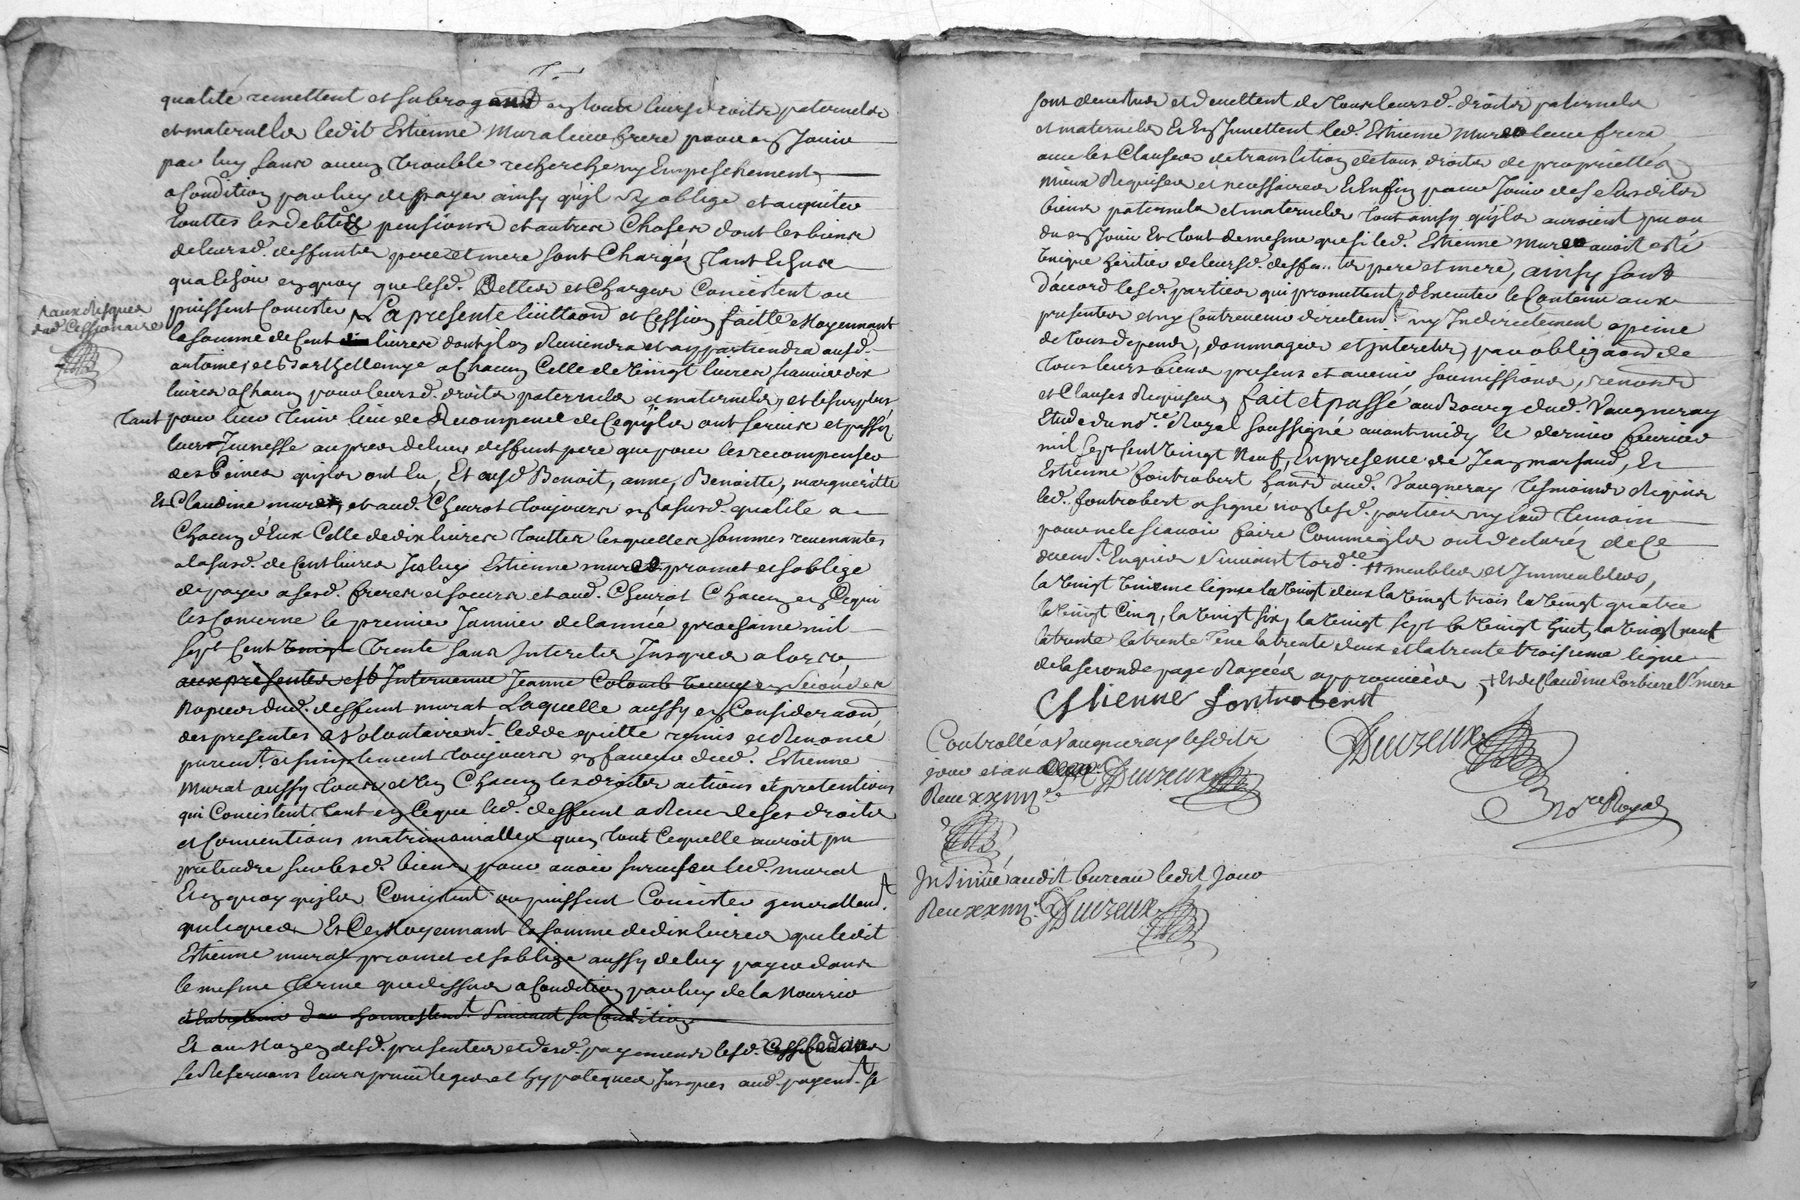 qualité remettent et subrogent en tous leurs droits paternels
et maternels ledit Estienne Murat leur frere pour en Jouir
par luy sans aucun trouble recherche ny Empeschement
a Condition par luy de payer ainsy qu'jl s'y oblige et acquiter
touttes les debtes pensions et autres Choses dont les biens
de leursd. deffunts pere et mere sont Chargés, tant Echus
qua Echoir en quoy que lesd. Dettes et Charges Concistent ou
puissent Concister
aux Risques
dud. Cessionaire
La presente et Cession faitte Moyennant
la somme de Cent livres dont jl en Reviendra et appartiendra ausd.
antoine, et Barthellemye a Chacun Celle de vingt livres scavoir dix
livres a Chacun pour leursd. droits paternels et maternels, et le surplus
tant pour leur tenir lieu de Recompense de Ce qu'jls ont servir et passéz
leur Jeunesse aupres de leur deffunt pere que pour les recompenser
des Peines qu'jls ont Eu, Et ausd. Benoit, anne, Benoitte, marguéritte
Et Claudine murat, et aud. Cheurot toujours en sasusd. qualité a
Chacun d'Eux Celle de dix livres touttes lesquelles sommes revenantes
alasusd. de Cent livres Jceluy Estienne murat promet et soblige
de payer a sesd. freres et soeurs et aud. Cheurot Chacun en Ce qui
les Concerne le premier Janvier de lannée prochaine mil
sept Cent vingt trente sans Interets Jusques alors
aux presentes est Intervenue Jeanne Colomb veuve en secondes
Nopces dud. deffunt murat Laquelle aussy en Consideraon
des presentes a volontairemt. cedde quitte remis et Renoncé
puremt. et simplement toujours en faveur dud. Estienne
Murat aussy tous et un Chacun les droits actions et pretentions
qui Concistent tant en Ce que led. deffunt a Receu de ses droits
et Conventions matrimonialles que tout Ce quelle auroit pu
pretendre sur lesd. biens pour avoir survescu led. murat
En quoy qu'jls Concistent ou puissent Concister generallemt.
quelques Et Ce Moyennant la somme de dix livres que ledit
Estienne murat promet et soblige aussy de luy payer dans
le mesme terme que dessus a Condition par luy de la Nourrir
et Entretenir honnestemt. suivant sa Condition
Et au Moyen desd. presentes et desd. payements lesd. Cedans
se Reservans leurs privilleges et hypoteques Jusques aud. payemt. se
sont demettent de tous leursd. droits paternels
et maternels Et En Jnvettent led. Estienne Murat leur frere
avec les Clauses de translation de tous droits de proprietté
mieux Requises et necessaires Et Enfin pour Jouir de sesusdits
biens paternels et maternels tout ainsy qu'jls auroient pu ou
du en Jouir Et tout de mesme que si led. Estienne Murat avoit esté
Unique héritier de leursd. deffunts pere et mere, ainsy sont
d'accord lesd. parties qui promettent, d'Executer le Contenu aux
presentes et ny Contrevenir directemt. ny Jndirectement a peine
de tous depens, dommages et Jnterets, par obligaon de
tous leurs biens presens et avenir soumissions, renons
et Clauses Requises, fait et passé au Bourg dud. Vaugneray
Etude du nore. Royal soussigné avant midy le dernier fevrier
mil sept Cent vingt Neuf, En presence de Jean marsaud, Et
Estienne fontrobert hants aud. Vaugneray tesmoins Requis
led. fontrobert a signé non lesd. parties ny laud. temoin
pour ne le scavoir faire Comme jls ont déclaré de Ce
duemt. Enquis suivant lord. meubles et Jmmeubles,
la vingt unieme ligne la vingt deux la vingt trois la vingt quatre
la vingt Cinq, la vingt six, la vingt sept la vingt huit, la vingt neuf
la trente la trente une la trente deux et la trente troisieme ligne
de la seconde page Rayées approuvées, + Et de Claudine Corbiere mere
Estienne fontrobert
Controllé a Vaugneray lesdits
jour et an Duvzeux
Receu xxiiii s.
Duvzeux
Nore Royal
Jnsinué audit bureau ledit Jour
Receu xxiiii s. Duvzeux